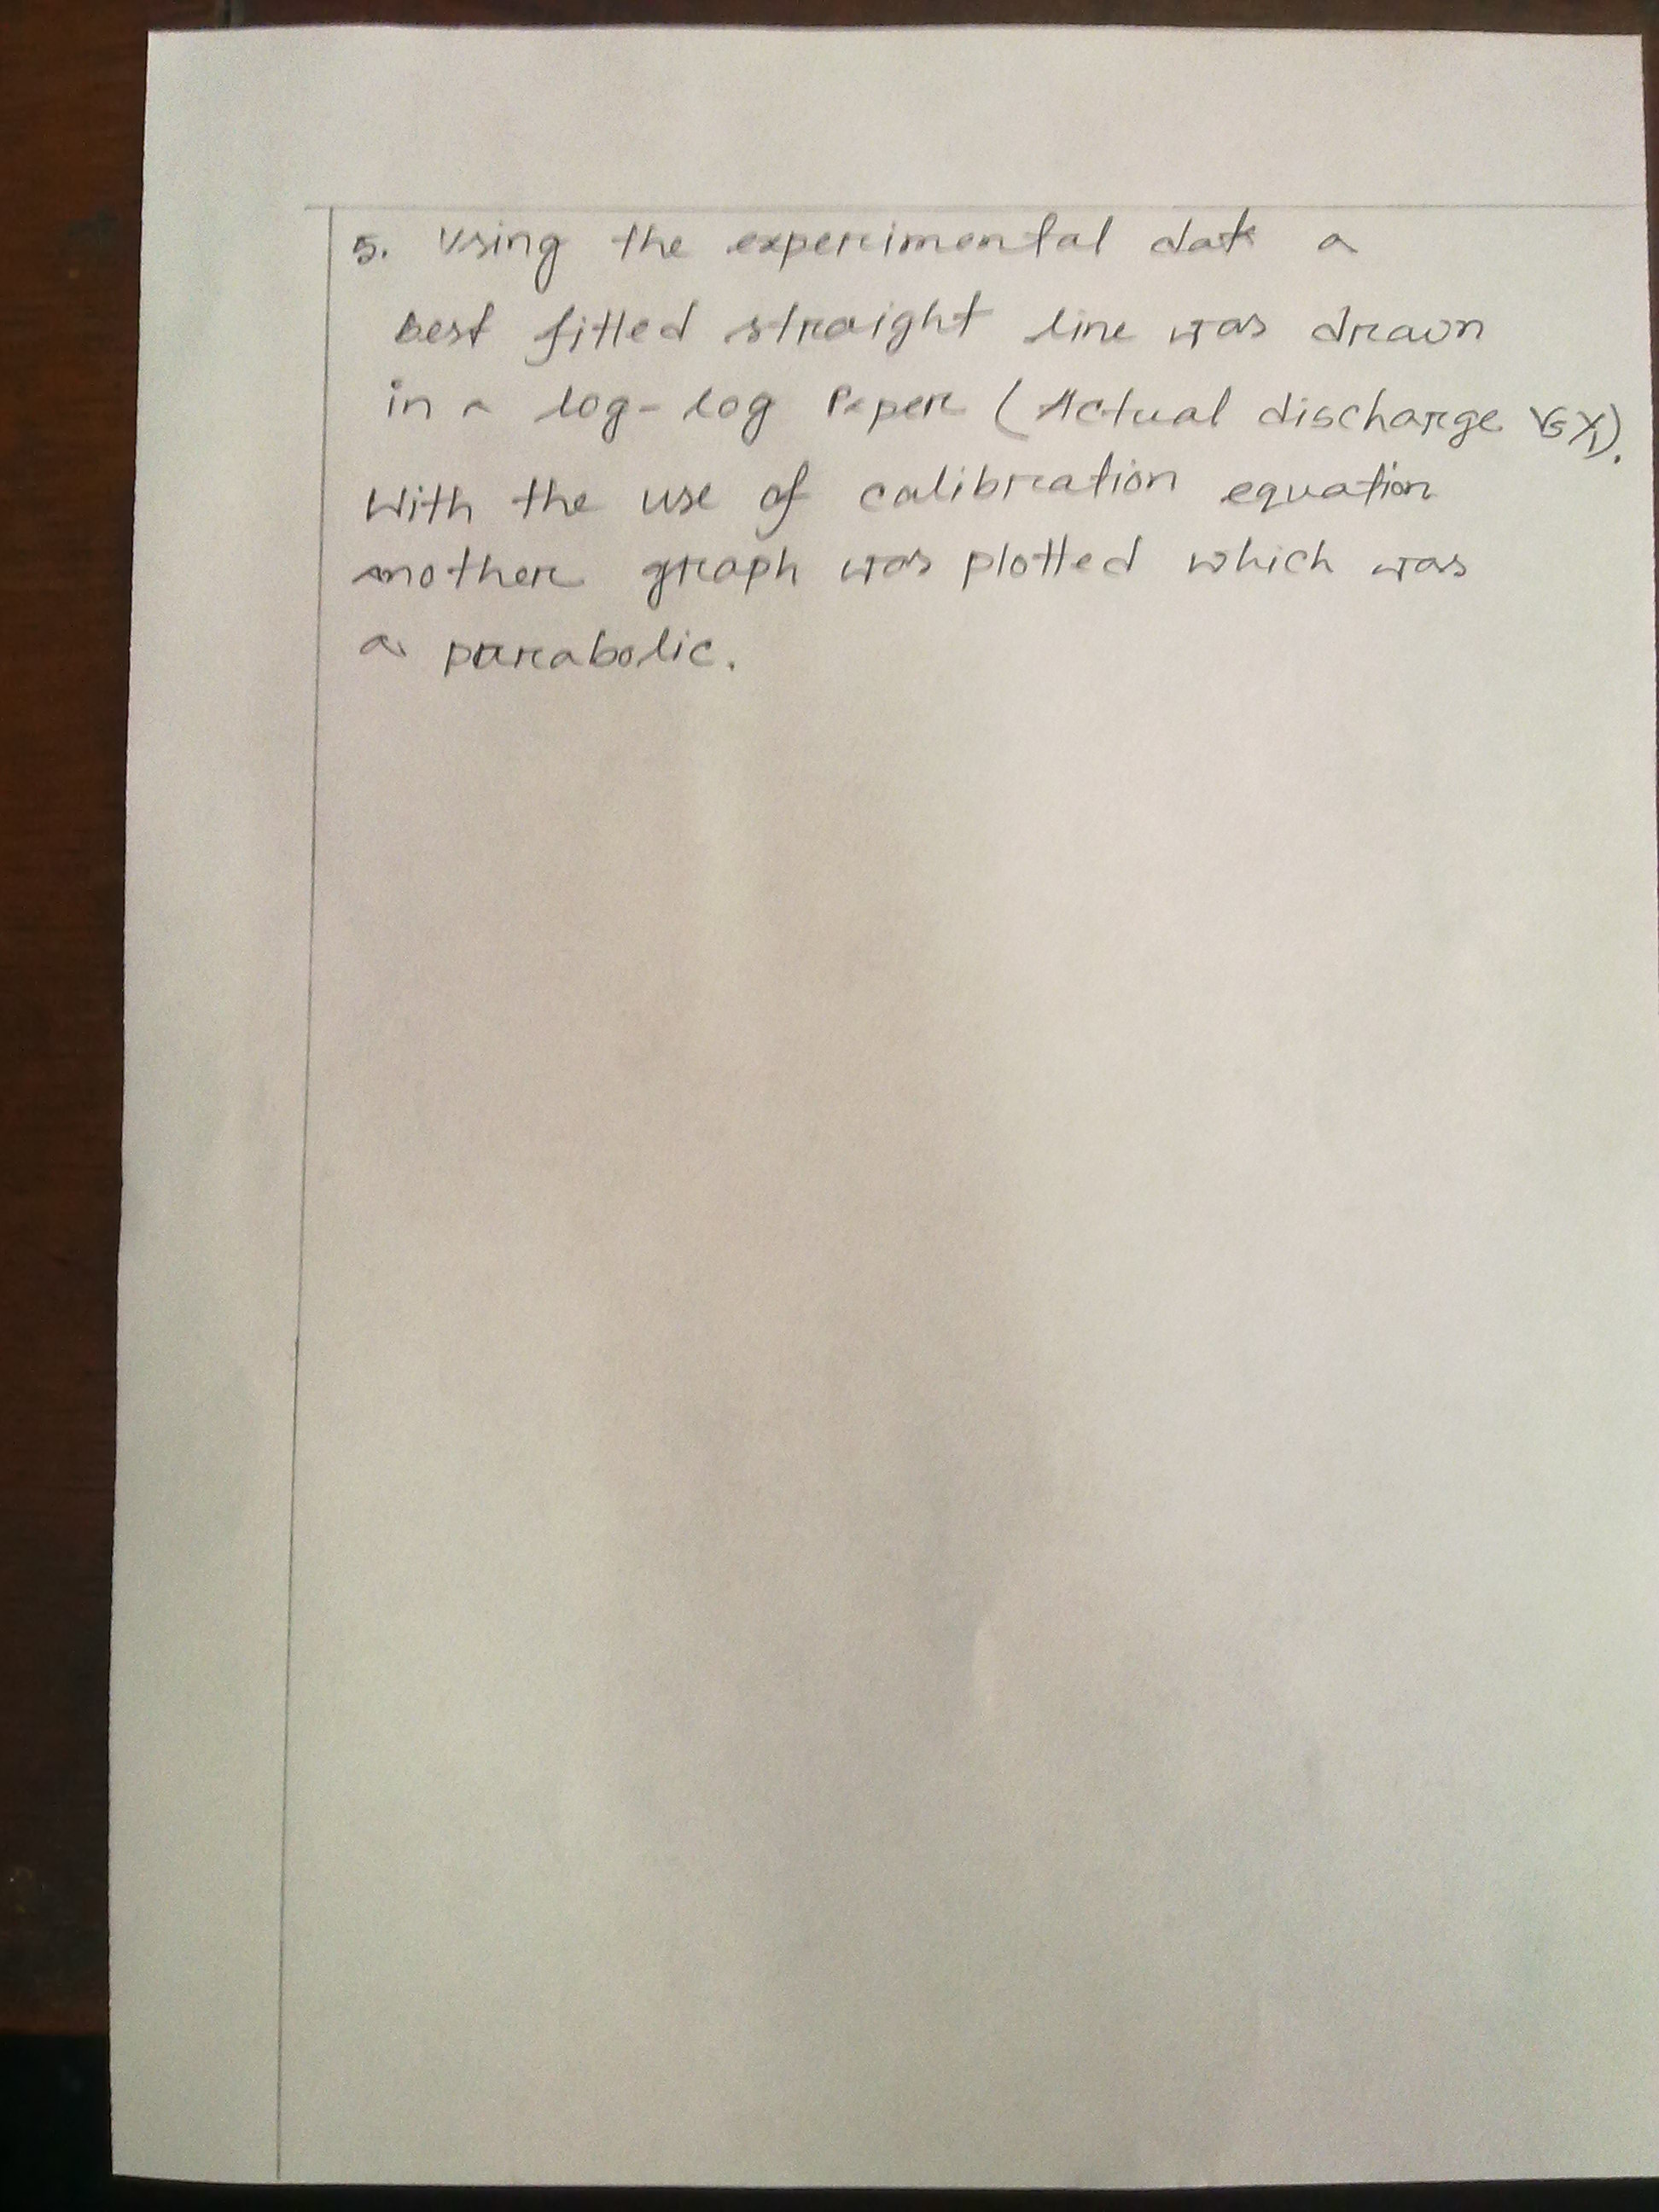 5. Using the experimental data a
best fitted straight line was drawn
in a log-log Paper (Actual discharge vs X₁).
With the use of calibration equation
another graph was plotted which was
a parabolic.